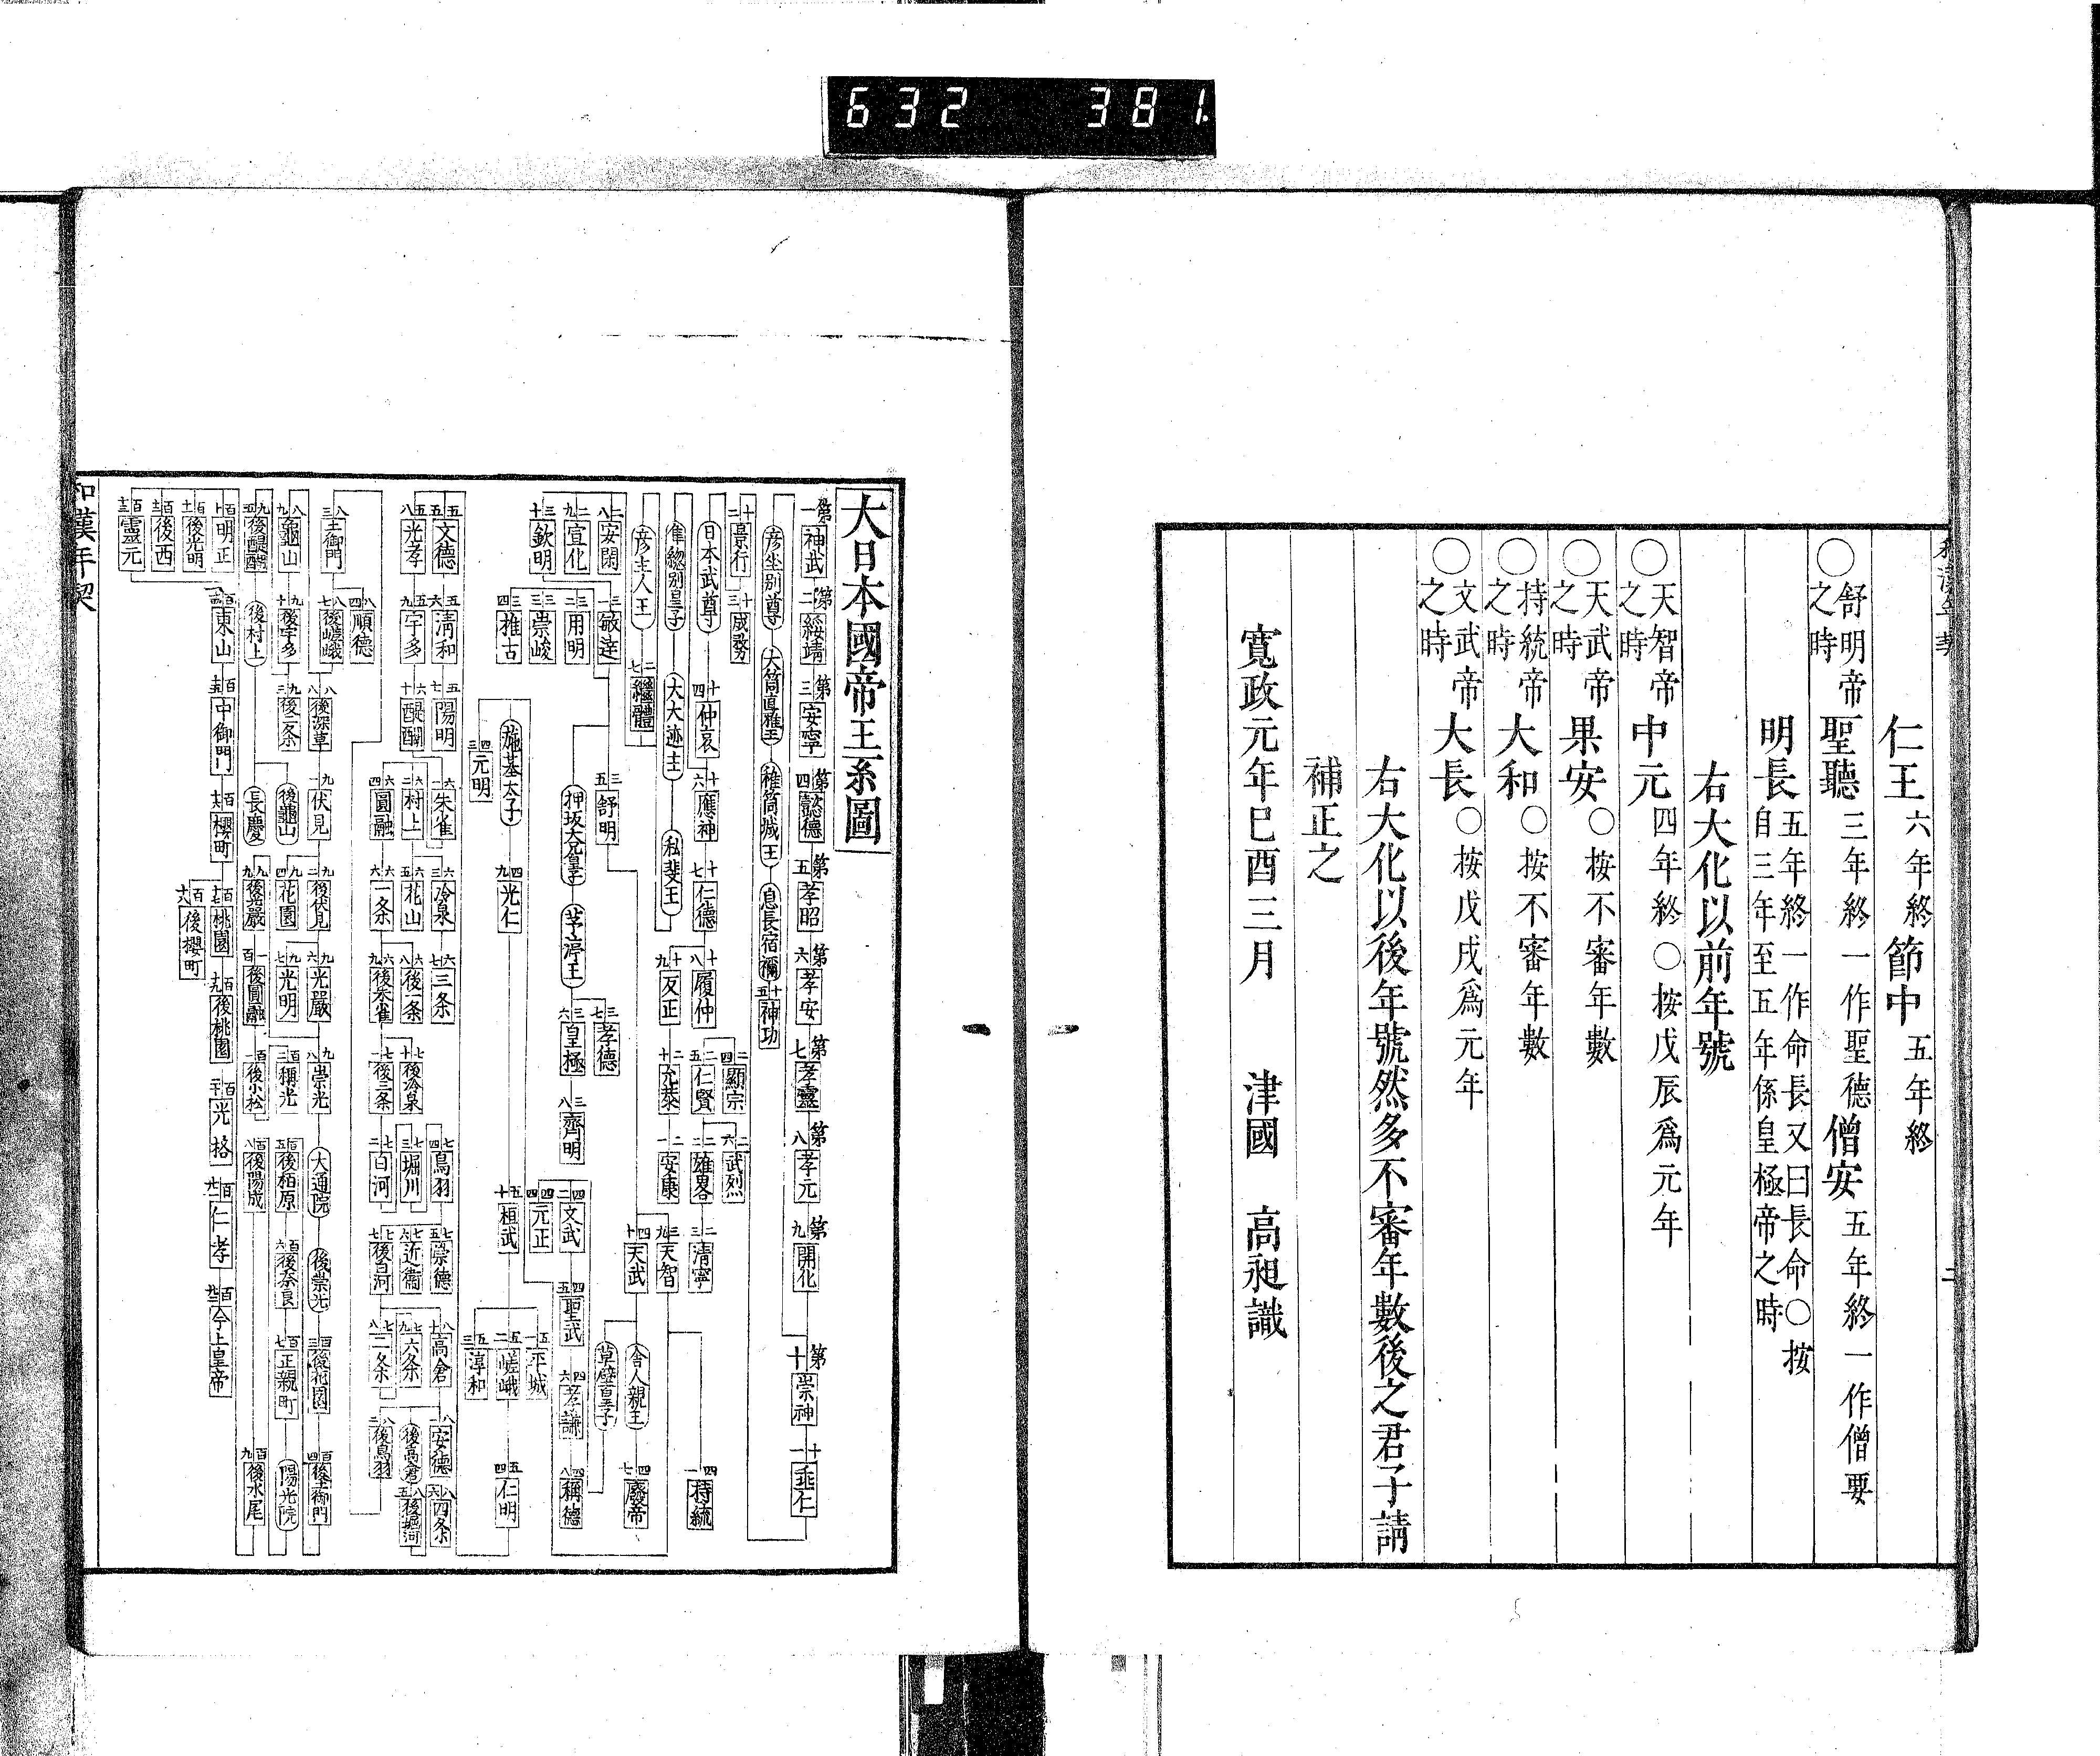 632 381.
仁王六年終節中五年終
○舒明帝之時聖聽三年終一作聖德僧安五年終一作僧要
明長五年終一作命長又曰長命○按自三年至五年係皇極帝之時
右大化以前年號
○天智帝之時中元四年終○按戊辰爲元年
○天武帝之時果安○按不審年數
○持統帝之時大和○按不審年數
○文武帝之時大長○按戊戌爲元年
右大化以後年號然多不審年數後之君子請
補正之
寬政元年己酉三月 津國 高昶識
大日本國帝王系圖
第一神武 第二綏靖 第三安寧 第四懿德 第五孝昭 第六孝安 第七孝靈 第八孝元 第九開化 第十崇神 十一垂仁
彦坐別尊 大筒眞稚王 稚筒城王 息長宿禰 十五神功
十二景行 十三成務
日本武尊 十四仲哀 十六應神 十七仁德 十八履仲 二四顯宗 二五仁賢 二六武烈
隼總別皇子 大大迹王 私斐王 十九反正 二十允恭 二一安康 二二雄畧 二三清寧
彦主人王 二七繼體
二八安閑 二九宣化 三十欽明
三一敏達 三二用明 三三崇峻 三四推古
三五舒明 押坂大兄皇子 茅渟王 三七孝德 三六皇極 三八齊明
三九天智 四十天武 四一持統
舍人親王 草壁皇子 四七廢帝
四二文武 四四元正 四五聖武 四六孝謙 四八稱德
施基太子 四三元明 四九光仁 五十桓武 五一平城 五二嵯峨 五三淳和 五四仁明
五五文德 五六清和 五七陽明 六一朱雀 六三冷泉 六七三条
五八光孝 五九宇多 六十醍醐 六二村上 六五花山 六八後一条 七十後冷泉
六四圓融 六六一条 六九後朱雀 七一後三条 七二白河 七三堀川 七四鳥羽
七五崇德 七六近衞 七七後白河 七八二条 七九六条 八十高倉
八一安德 後高倉 八二後鳥羽 八五後堀河 八六四条
八三土御門 八四順德 八七後嵯峨 八八後深草 九一伏見 九二後伏見 九六光嚴 九八崇光 大通院 後崇光 百三後花園 百四後土御門
九十龜山 九十後宇多 九三後二条 後龜山 九四花園 九七光明 百三稱光 百五後柏原 百六後奈良 百七正親町 陽光院
九五後醍醐 後村上 長慶 九九後光嚴 百一後圓融 百一後小松 百八後陽成 百九後水尾
百十明正 百十一後光明 百十二後西 百十三靈元
百十四東山 百十五中御門 百十六櫻町 百十七桃園 百十八後櫻町 百十九後桃園 百二十光格 百廿一仁孝 百廿二今上皇帝
和漢年契